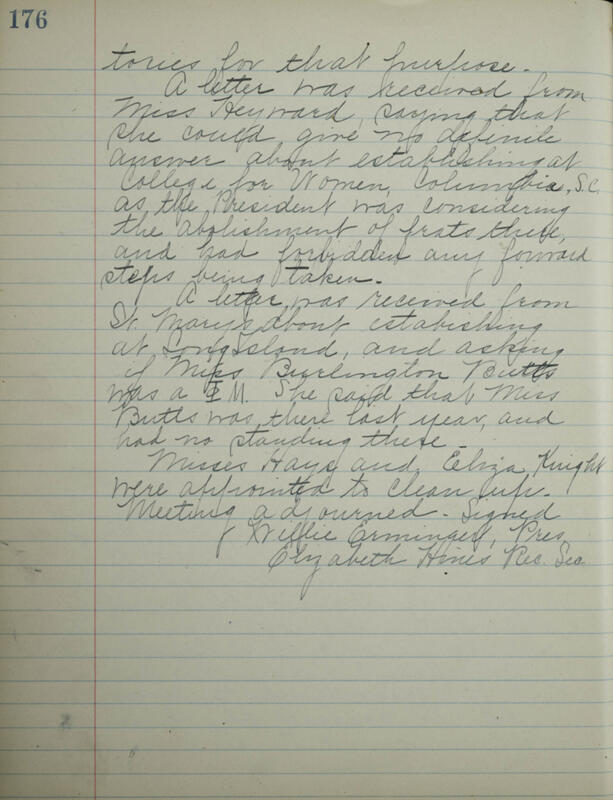 176
tories for that purpose.
A letter was received from
Miss Heyward, saying that
she could give no definite
answer about establishing at
College for Women, Columbia, S.C.
as the President was considering
the abolishment of frats there,
and had forbidden any forward
steps being taken.
A letter was received from
St. Mary's about estabishing
at Long Island, and asking
if Miss Burlington Butts
was a Φ M. She said that Miss
Butts was there last year, and
had no standing there.
Misses Hays and Eliza Knight
were appointed to clean up.
Meeting adjourned - Signed
Willie Erminger, Pres
Elizabeth Hines Rec. Sec.